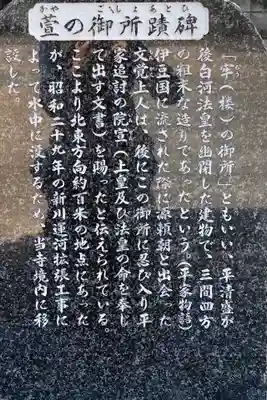 萱の御所蹟碑
かや ごしょあとひ
「牢（楼）の御所」ともいい、平清盛が
後白河法皇を幽閉した建物で、三間四方
の粗末な造りであったという。（平家物語）
伊豆国に流された際に源頼朝と出会った
文覚上人は、後にこの御所に忍び入り平
家追討の院宣（上皇及び法皇の命を奉じ
て出す文書）を賜ったと伝えられている。
ここより北東方向約百米の地点にあった
が、昭和二十九年の新川運河拡張工事に
よって水中に没するため、当寺境内に移
設した。